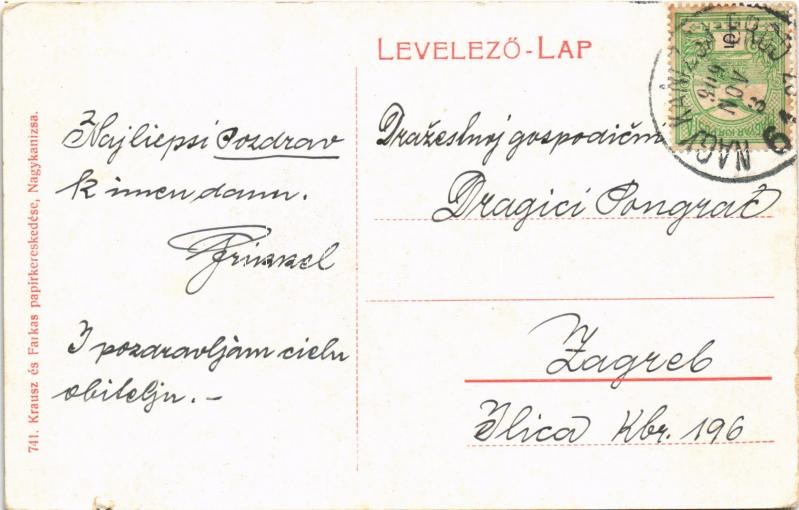 LEVELEZŐ-LAP
Najliepsi Pozdrav
k imendanu.
I pozdravljam cielu
obitelju. –
Dražestnoj gospodični
Dragici Pongrač
Zagreb
Ilica Kbr. 196
741. Krausz és Farkas papirkereskedése, Nagykanizsa.
NAGYKANIZSA
NOV